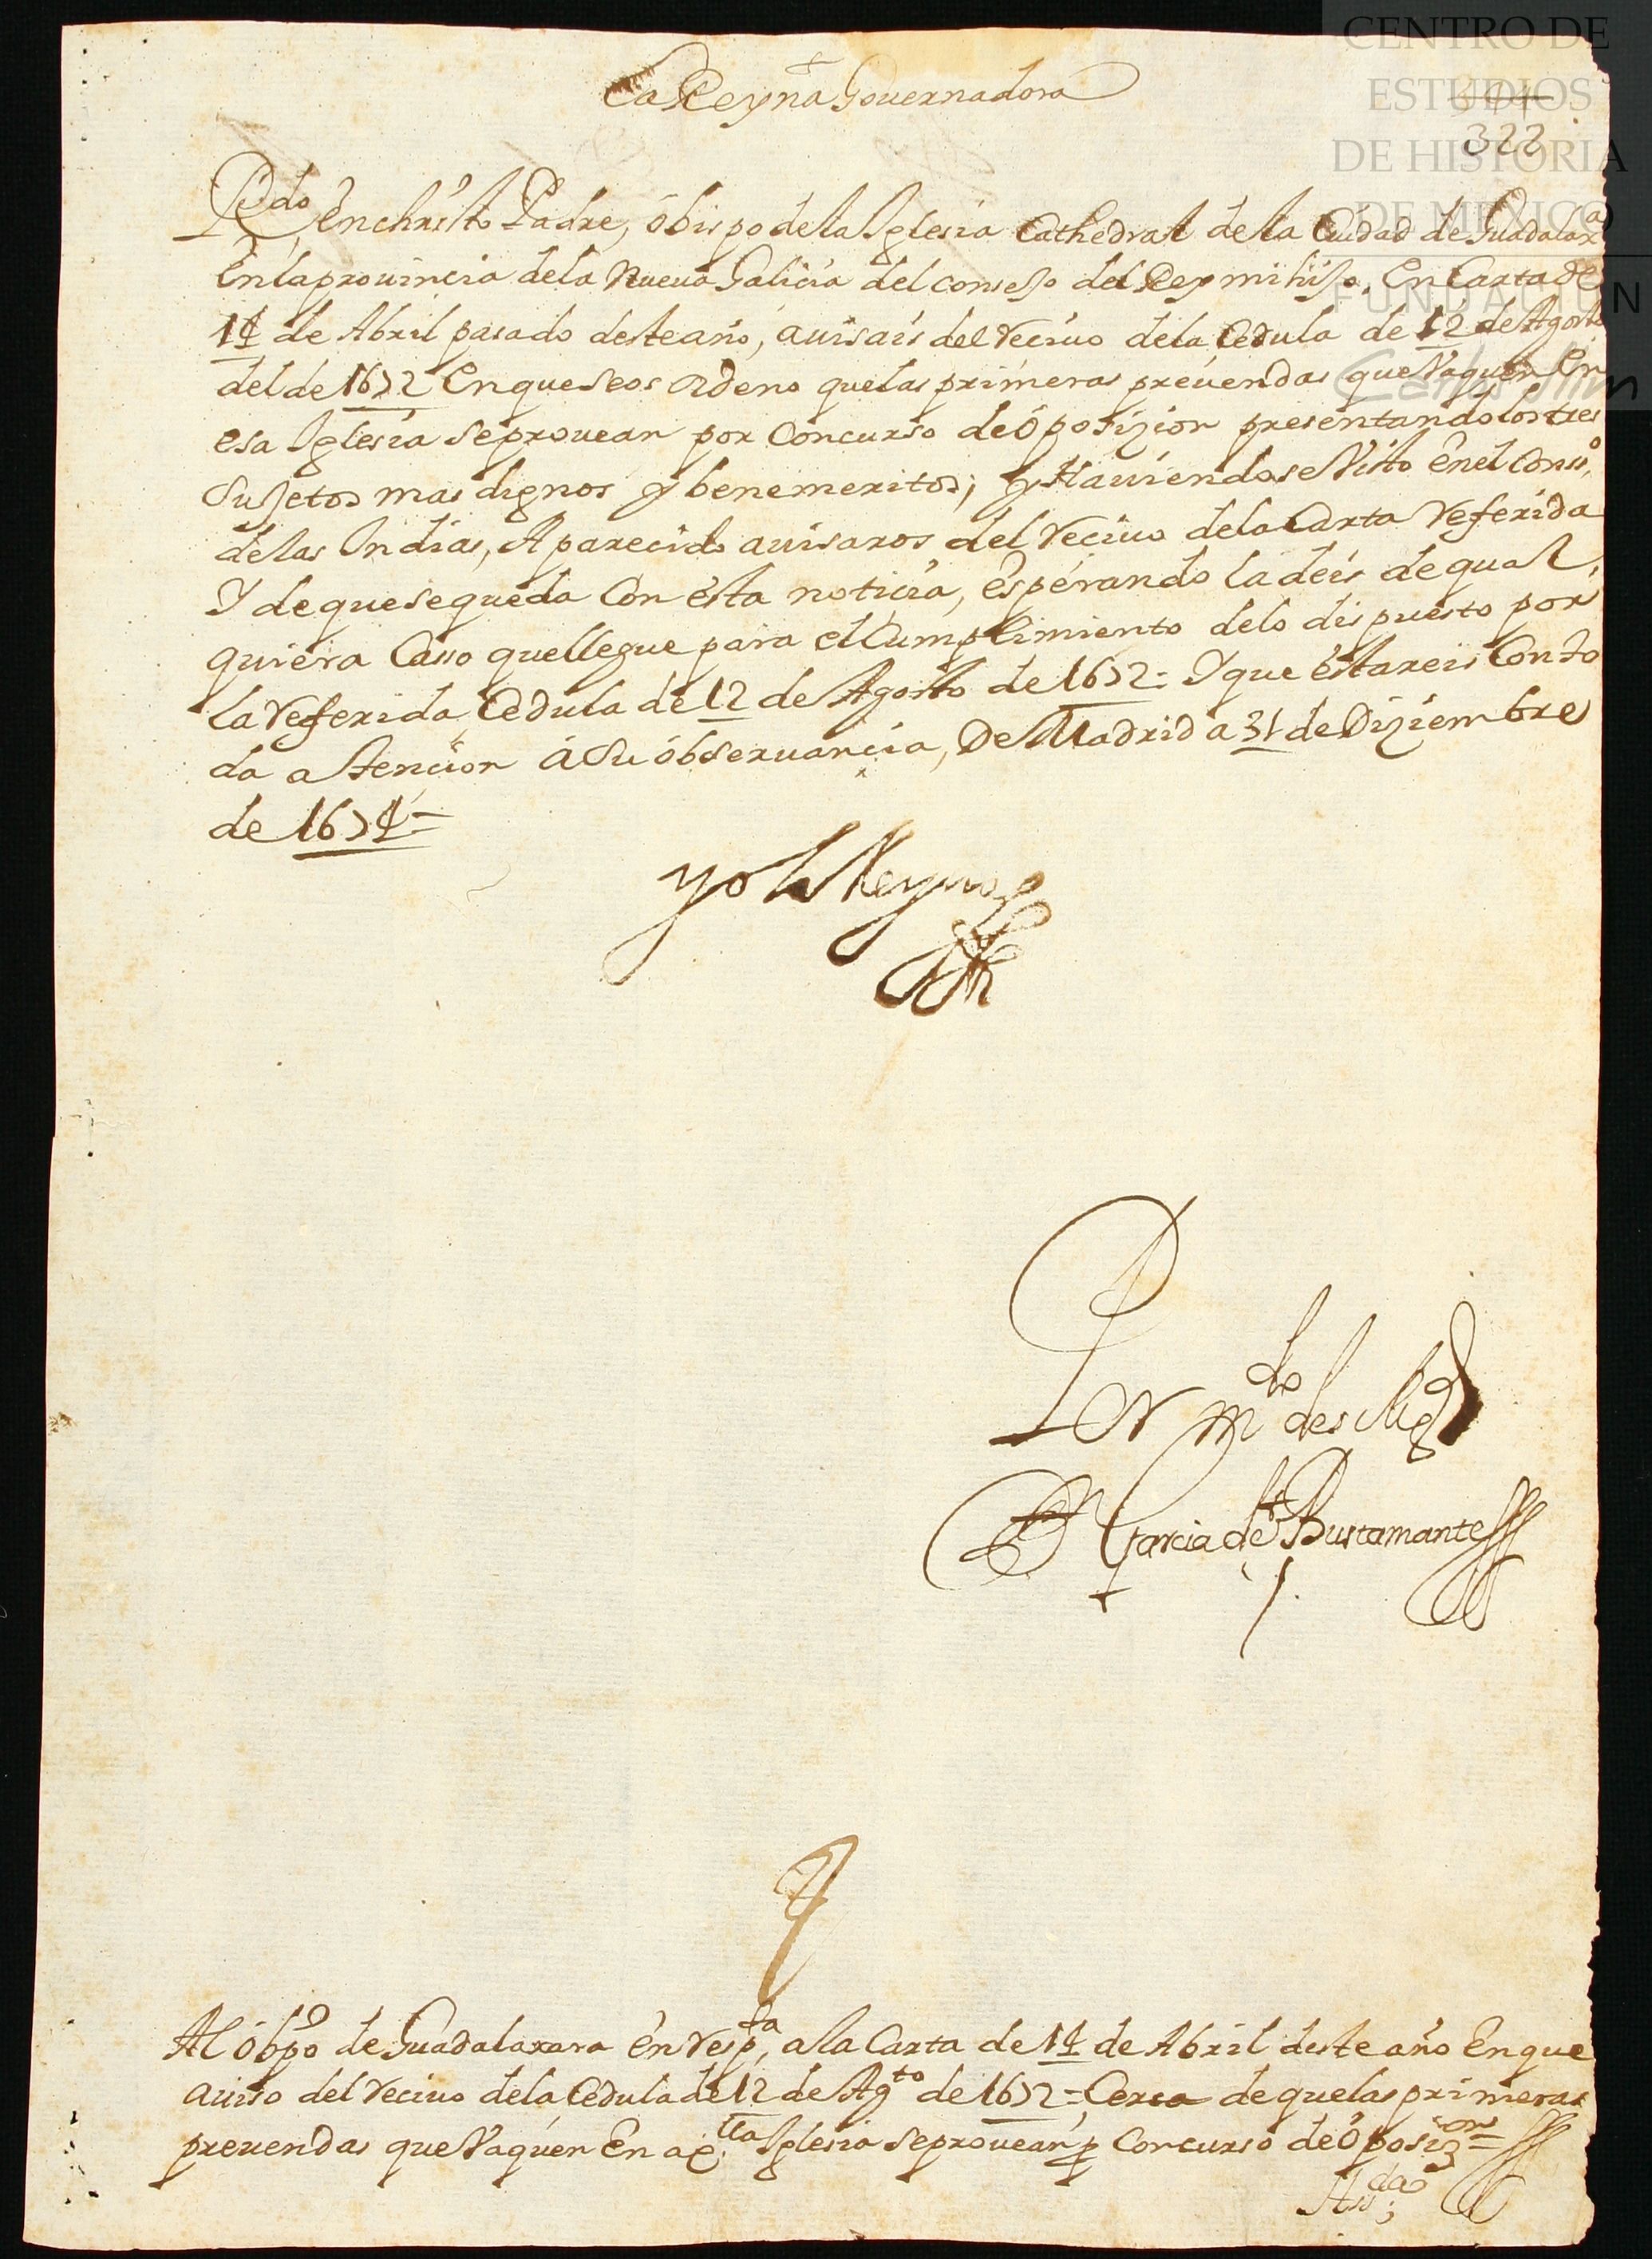 CENTRO DE
ESTUDIOS
DE HISTORIA
DE MEXICO
FUNDACION
Carlos Slim
La Reyna Gouernadora
322
Rdo enchristo Padre, óbispo dela Iglesia Cathedral de la Ciudad de Guadalaxa
En la prouincia dela Nueva Galicia del consejo del Rey mi hijo, En Carta de
14 de Abril pasado deste año, auisais del reciuo dela Cedula de 12 de Agosto
del de 1672 En que se os ordeno que las primeras preuendas que Vaquen En
esa Iglesia se prouean por Concurso de óposizion presentando los tres
Sujetos mas dignos y benemeritos; y Hauiendose Visto enel Conso,
de las Indias, A parecido auisaros del reciuo dela Carta referida
Y de que se queda Con esta noticia, esperando la deis de qual,
quiera Casso que llegue para el Cumplimiento delo dispuesto por
la referida Cedula de 12 de Agosto de 1672 = Y que estareis Con to
da atencion á Su óbseruancia, De Madrid a 31 de Diziembre
de 1674 =
yo la Reyna
Por mdo de su Magd
Dn Garcia de Bustamante
Al óbpo de Guadalaxara En respta, a la Carta de 14 de Abril deste año En que
auiso del reciuo dela Cedula de 12 de Agto de 1672 = Cerca de que las primeras
preuendas que Vaquen En aqlla Iglesia se prouean p Concurso de óposizon =
Assda;